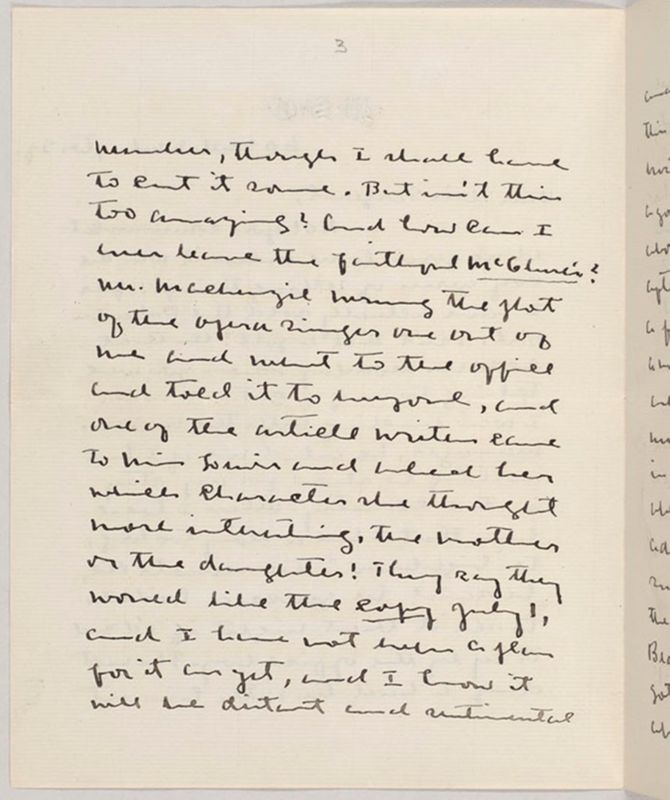 3
number, though I shall have
to cut it some. But isn't this
too amazing? And how can I
ever leave the faithful McClure's?
Mr. Mackenzie wrung the plot
of the opera singer one out of
me and went to the office
and told it to everyone, and
one of the article writers came
to Miss Lewis and asked her
which character she thought
more interesting, the mother
or the daughter! They say they
would like the copy July 1,
and I have not even a plan
for it as yet, and I know it
will be distant and sentimental